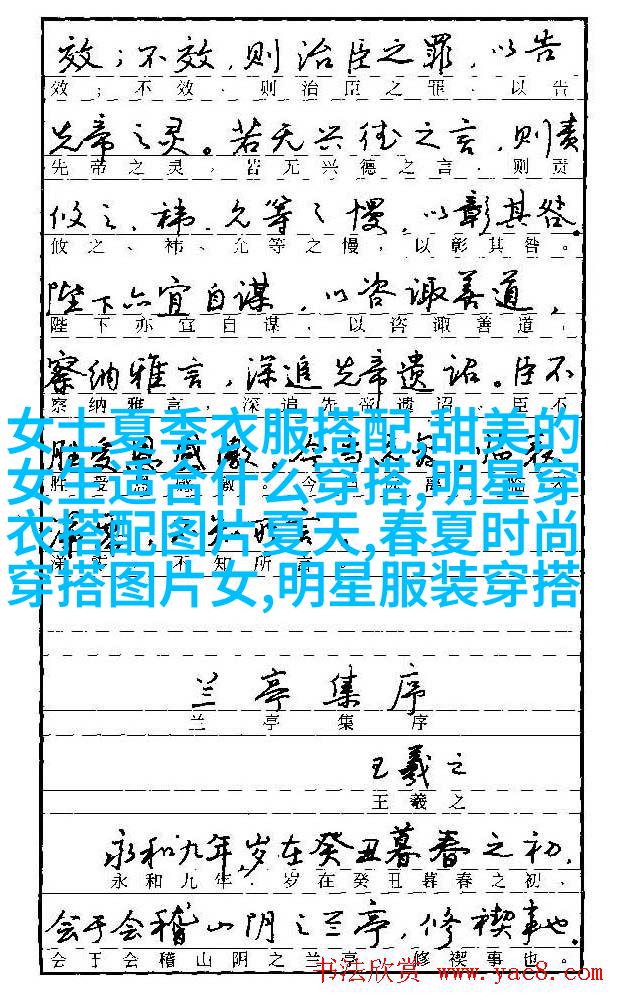 效；不效，则治臣之罪，以告
效；不效、则治臣之罪、以告
先帝之灵。若无兴德之言，则责
先帝之灵，若无兴德之言，则责
攸之、祎、允等之慢，以彰其咎。
攸之、祎、允等之慢，以彰其咎。
陛下亦宜自谋，以咨诹善道，
陛下亦宜自谋，以咨诹善道，
察纳雅言，深追先帝遗诏。臣不
察纳雅言，深追先帝遗诏、臣不
女士夏季衣服搭配,甜美的
女生适合什么穿搭,明星穿
衣搭配图片夏天,春夏时尚
穿搭图片女,明星服装穿搭
胜受恩感激。今当
胜受恩感激。今当
不知所言。
兰亭集序
兰亭集序
王羲之
王羲之
永和九年，岁在癸丑暮春之初，
永和九年，岁在癸丑暮春之初、
会于会稽山阴之兰亭，修禊事也。
会于会稽山阴之兰亭，修禊事也。
书法欣赏 www.yac8.com